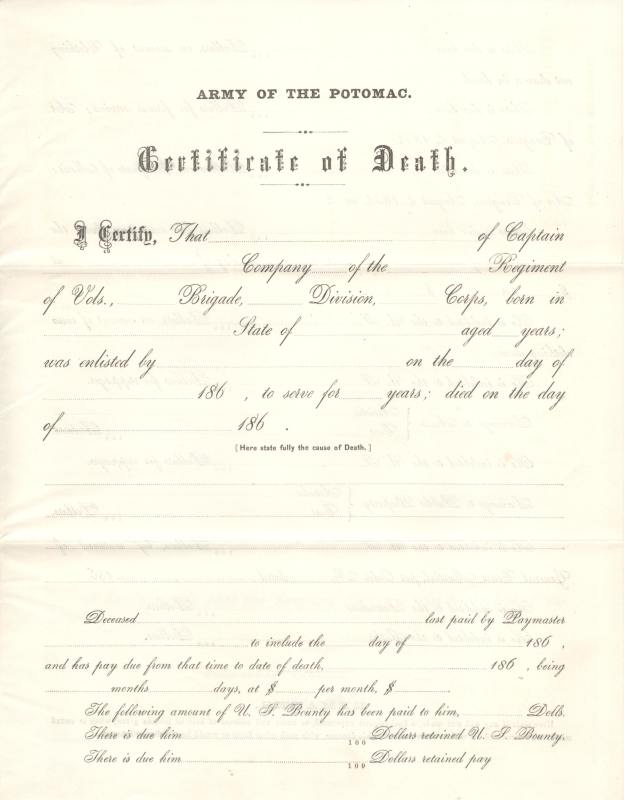 ARMY OF THE POTOMAC.
Certificate of Death.
I Certify, That of Captain
Company of the Regiment
of Vols., Brigade, Division, Corps, born in
State of aged years;
was enlisted by on the day of
186 , to serve for years; died on the day
of 186 .
[Here state fully the cause of Death.]
Deceased last paid by Paymaster
to include the day of 186 ,
and has pay due from that time to date of death, 186 , being
months days, at $ per month, $
The following amount of U. S. Bounty has been paid to him, Dolls.
There is due him 100 Dollars retained U. S. Bounty.
There is due him 100 Dollars retained pay